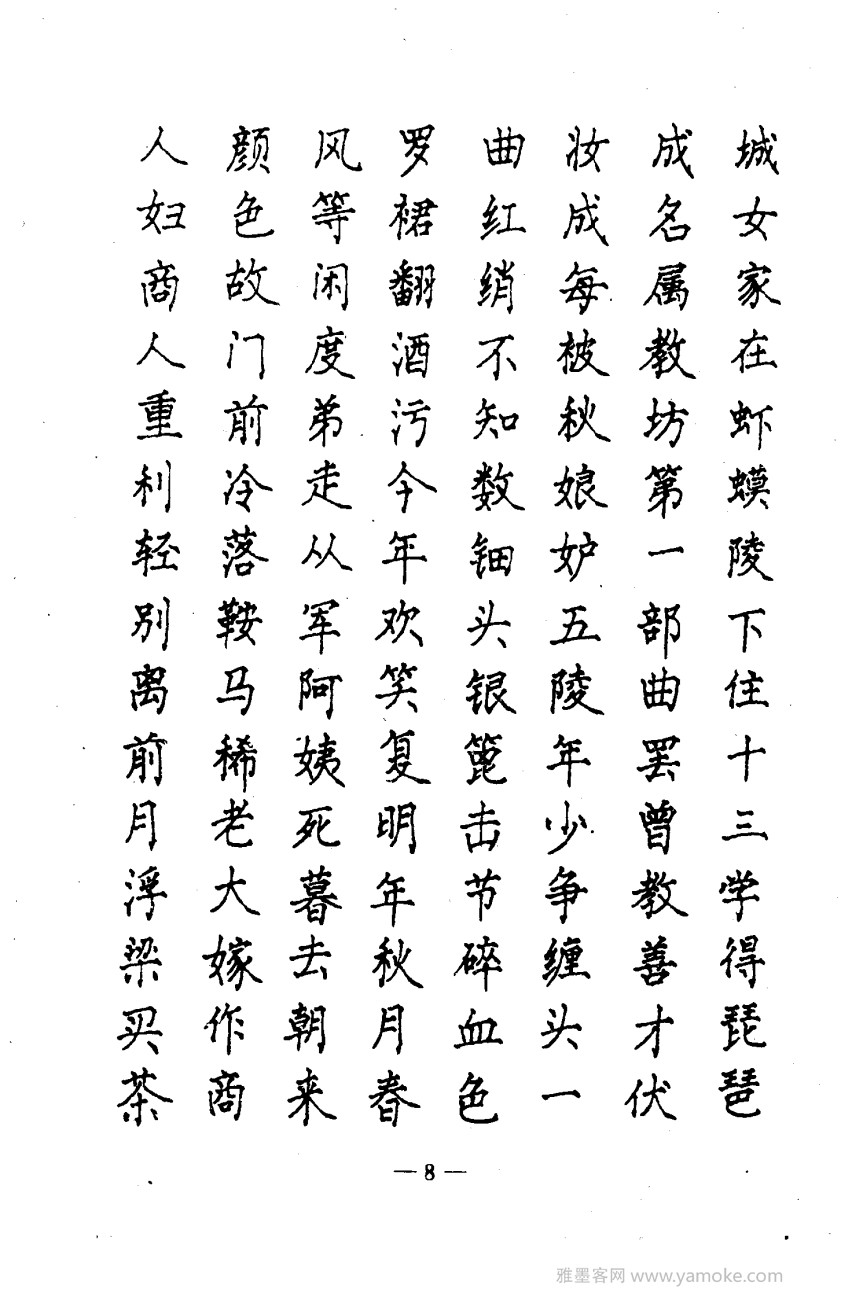 城女家在虾蟆陵下住十三学得琵琶
成名属教坊第一部曲罢曾教善才伏
妆成每被秋娘妒五陵年少争缠头一
曲红绡不知数钿头银篦击节碎血色
罗裙翻酒污今年欢笑复明年秋月春
风等闲度弟走从军阿姨死暮去朝来
颜色故门前冷落鞍马稀老大嫁作商
人妇商人重利轻别离前月浮梁买茶
— 8 —
雅墨客网 www.yamoke.com